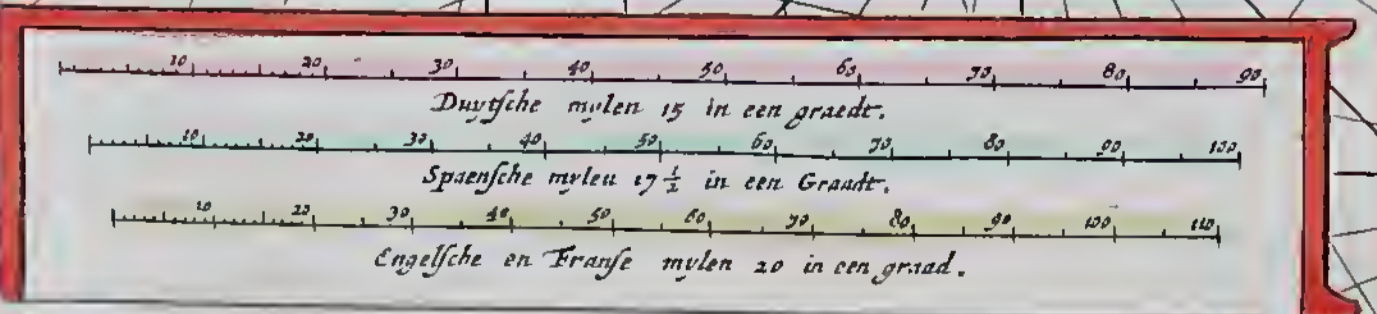 10 20 30 40 50 60 70 80 90
Duytsche mylen 15 in een graedt.
10 20 30 40 50 60 70 80 90 100
Spaensche mylen 17 1/2 in een Graadt.
10 20 30 40 50 60 70 80 90 100 110
Engelsche en Franse mylen 20 in een graad.